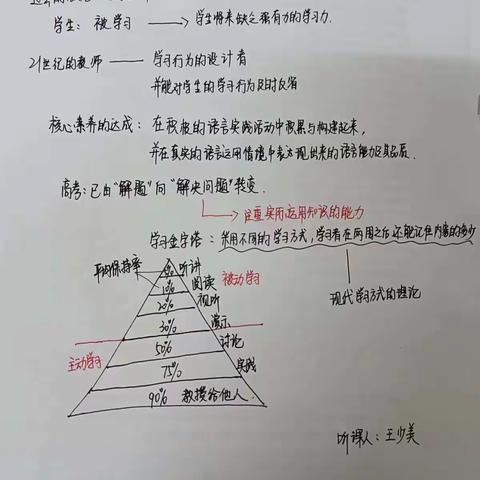 学生：被学习 → 学生将来缺乏强有力的学习力.
21世纪的教师 —— 学习行为的设计者
并能对学生的学习行为及时反省
核心素养的达成：在积极的语言实践活动中积累与构建起来，
并在真实的语言运用情境中表达现出来的语言能力及其品质.
高考：已由“解题”向“解决问题”转变.
注重实用运用知识的能力
学习金字塔：采用不同的学习方式，学习者在两周之后还能记住内容的多少
现代学习方式的理论
平均保持率
5% 听讲
10% 阅读
被动学习
20% 视听
30% 演示
主动学习
50% 讨论
75% 实践
90% 教授给他人.
听课人：王少美